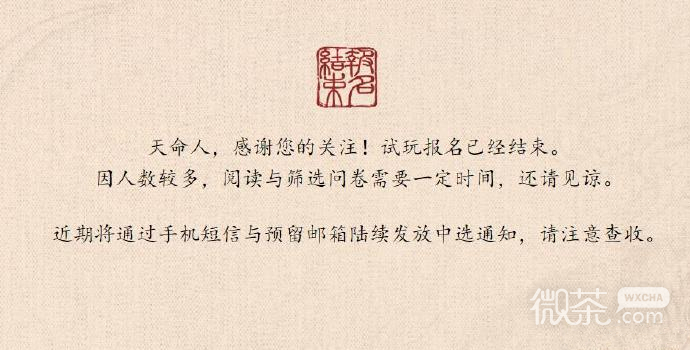 報名結束
天命人，感谢您的关注！试玩报名已经结束。
因人数较多，阅读与筛选问卷需要一定时间，还请见谅。
近期将通过手机短信与预留邮箱陆续发放中选通知，请注意查收。
微茶
WXCHA